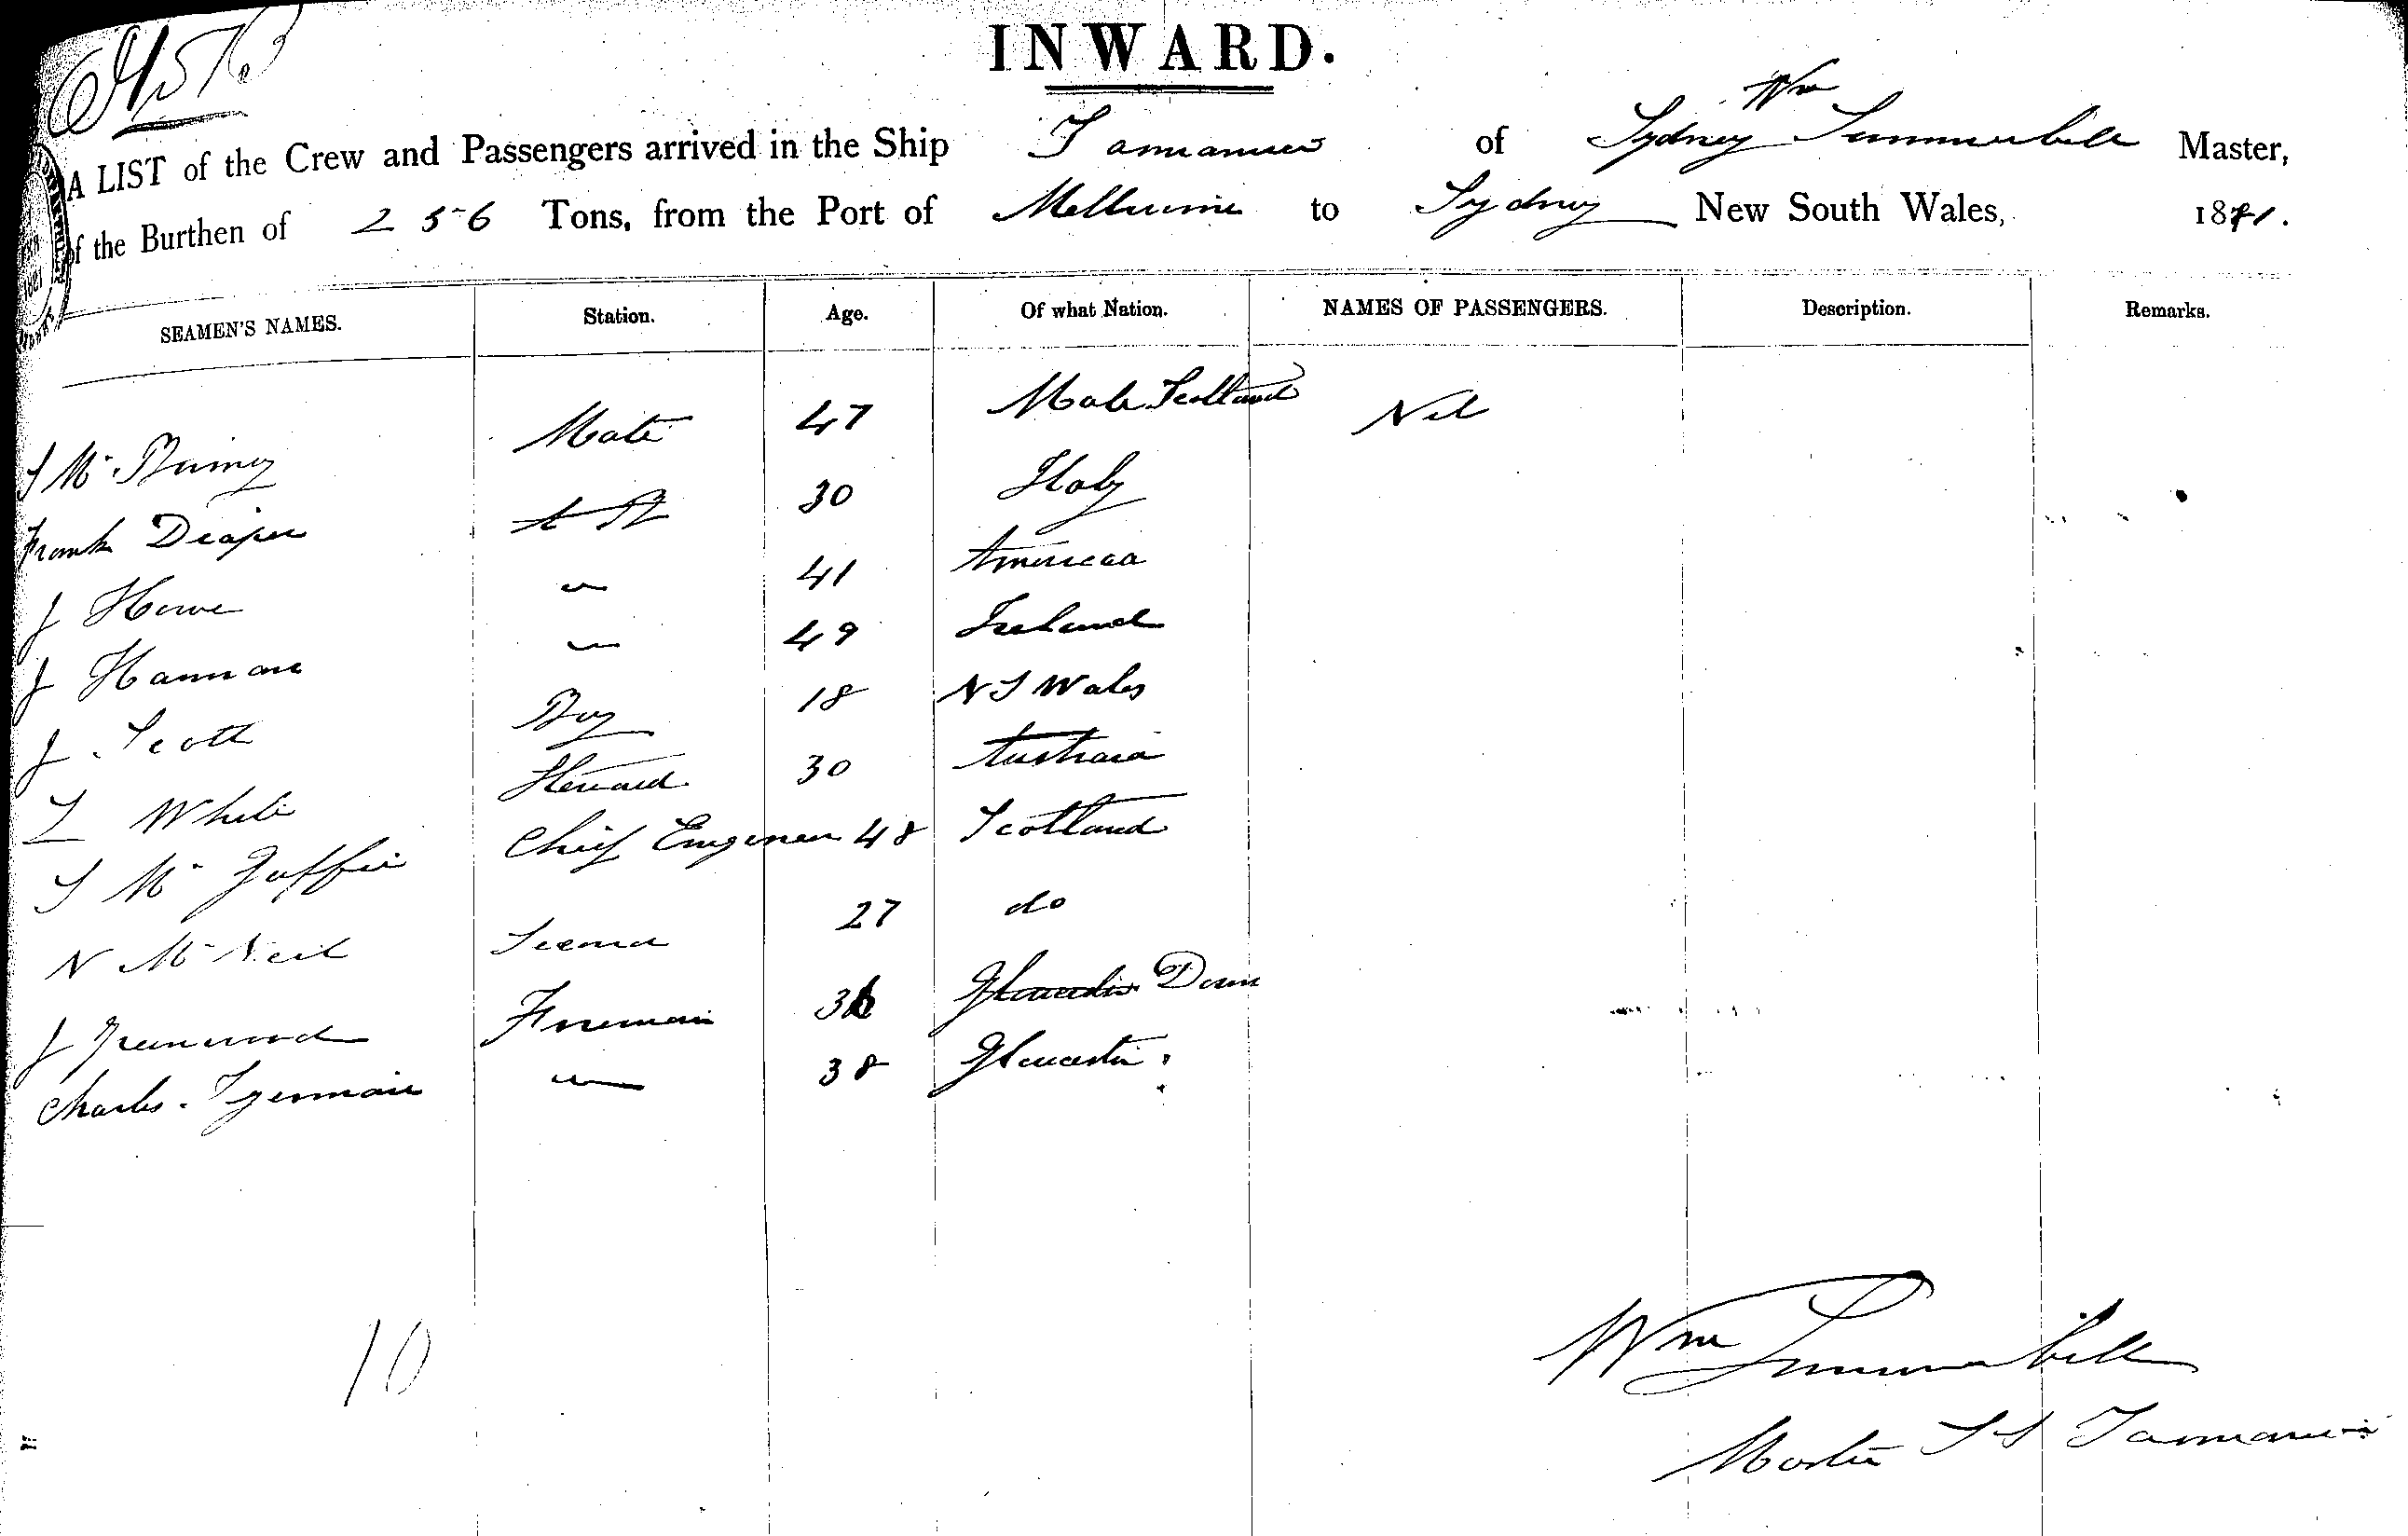 INWARD.
A LIST of the Crew and Passengers arrived in the Ship of Sydney Wm Summerbell Master,
of the Burthen of 256 Tons, from the Port of Melbourne to Sydney New South Wales, 1881.
SEAMEN'S NAMES. Station. Age. Of what Nation. NAMES OF PASSENGERS. Description. Remarks.
Mate 47 Scotland Nil
Frank Draper A B 30 Italy
J Howe " 41 American
J Hannan " 49 Ireland
J. Scott Boy 18 N S Wales
White Steward 30 Austraia
Mc Guffie Chief Engineer 48 Scotland
N McNeil 27 do
J Greenwood Fireman 36 Gloucester
Charles " 38 Gloucester
10
Wm Summerbell
Master S S